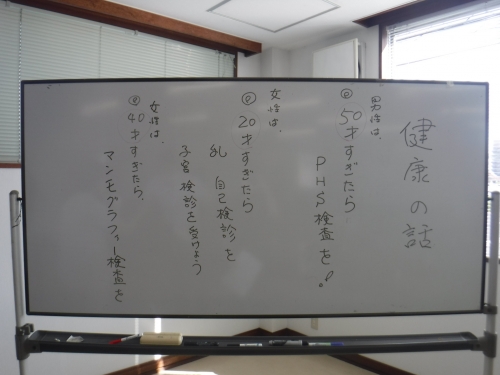 健康の話
男性は、
◎50才すぎたら
PHS検査を!
女性は、
◎20才すぎたら
乳 自己検診を
子宮検診を受けよう
女性は、
◎40才すぎたら、
マンモグラフィー検査を